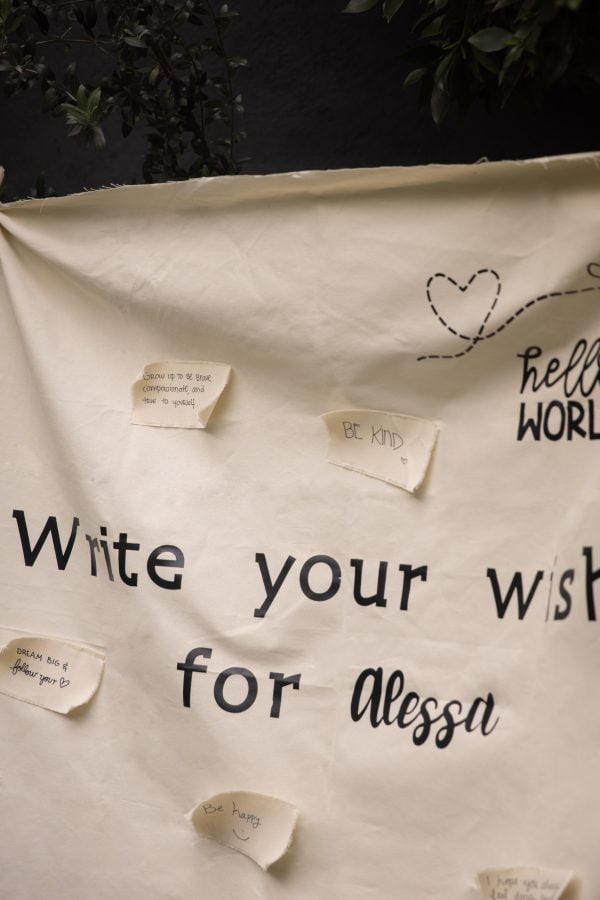 hello
WORL
Grow up to be brave,
compassionate, and
true to yourself.
BE KIND
Write your wish
for Alessa
DREAM BIG &
follow your
Be happy
I hope you
feel